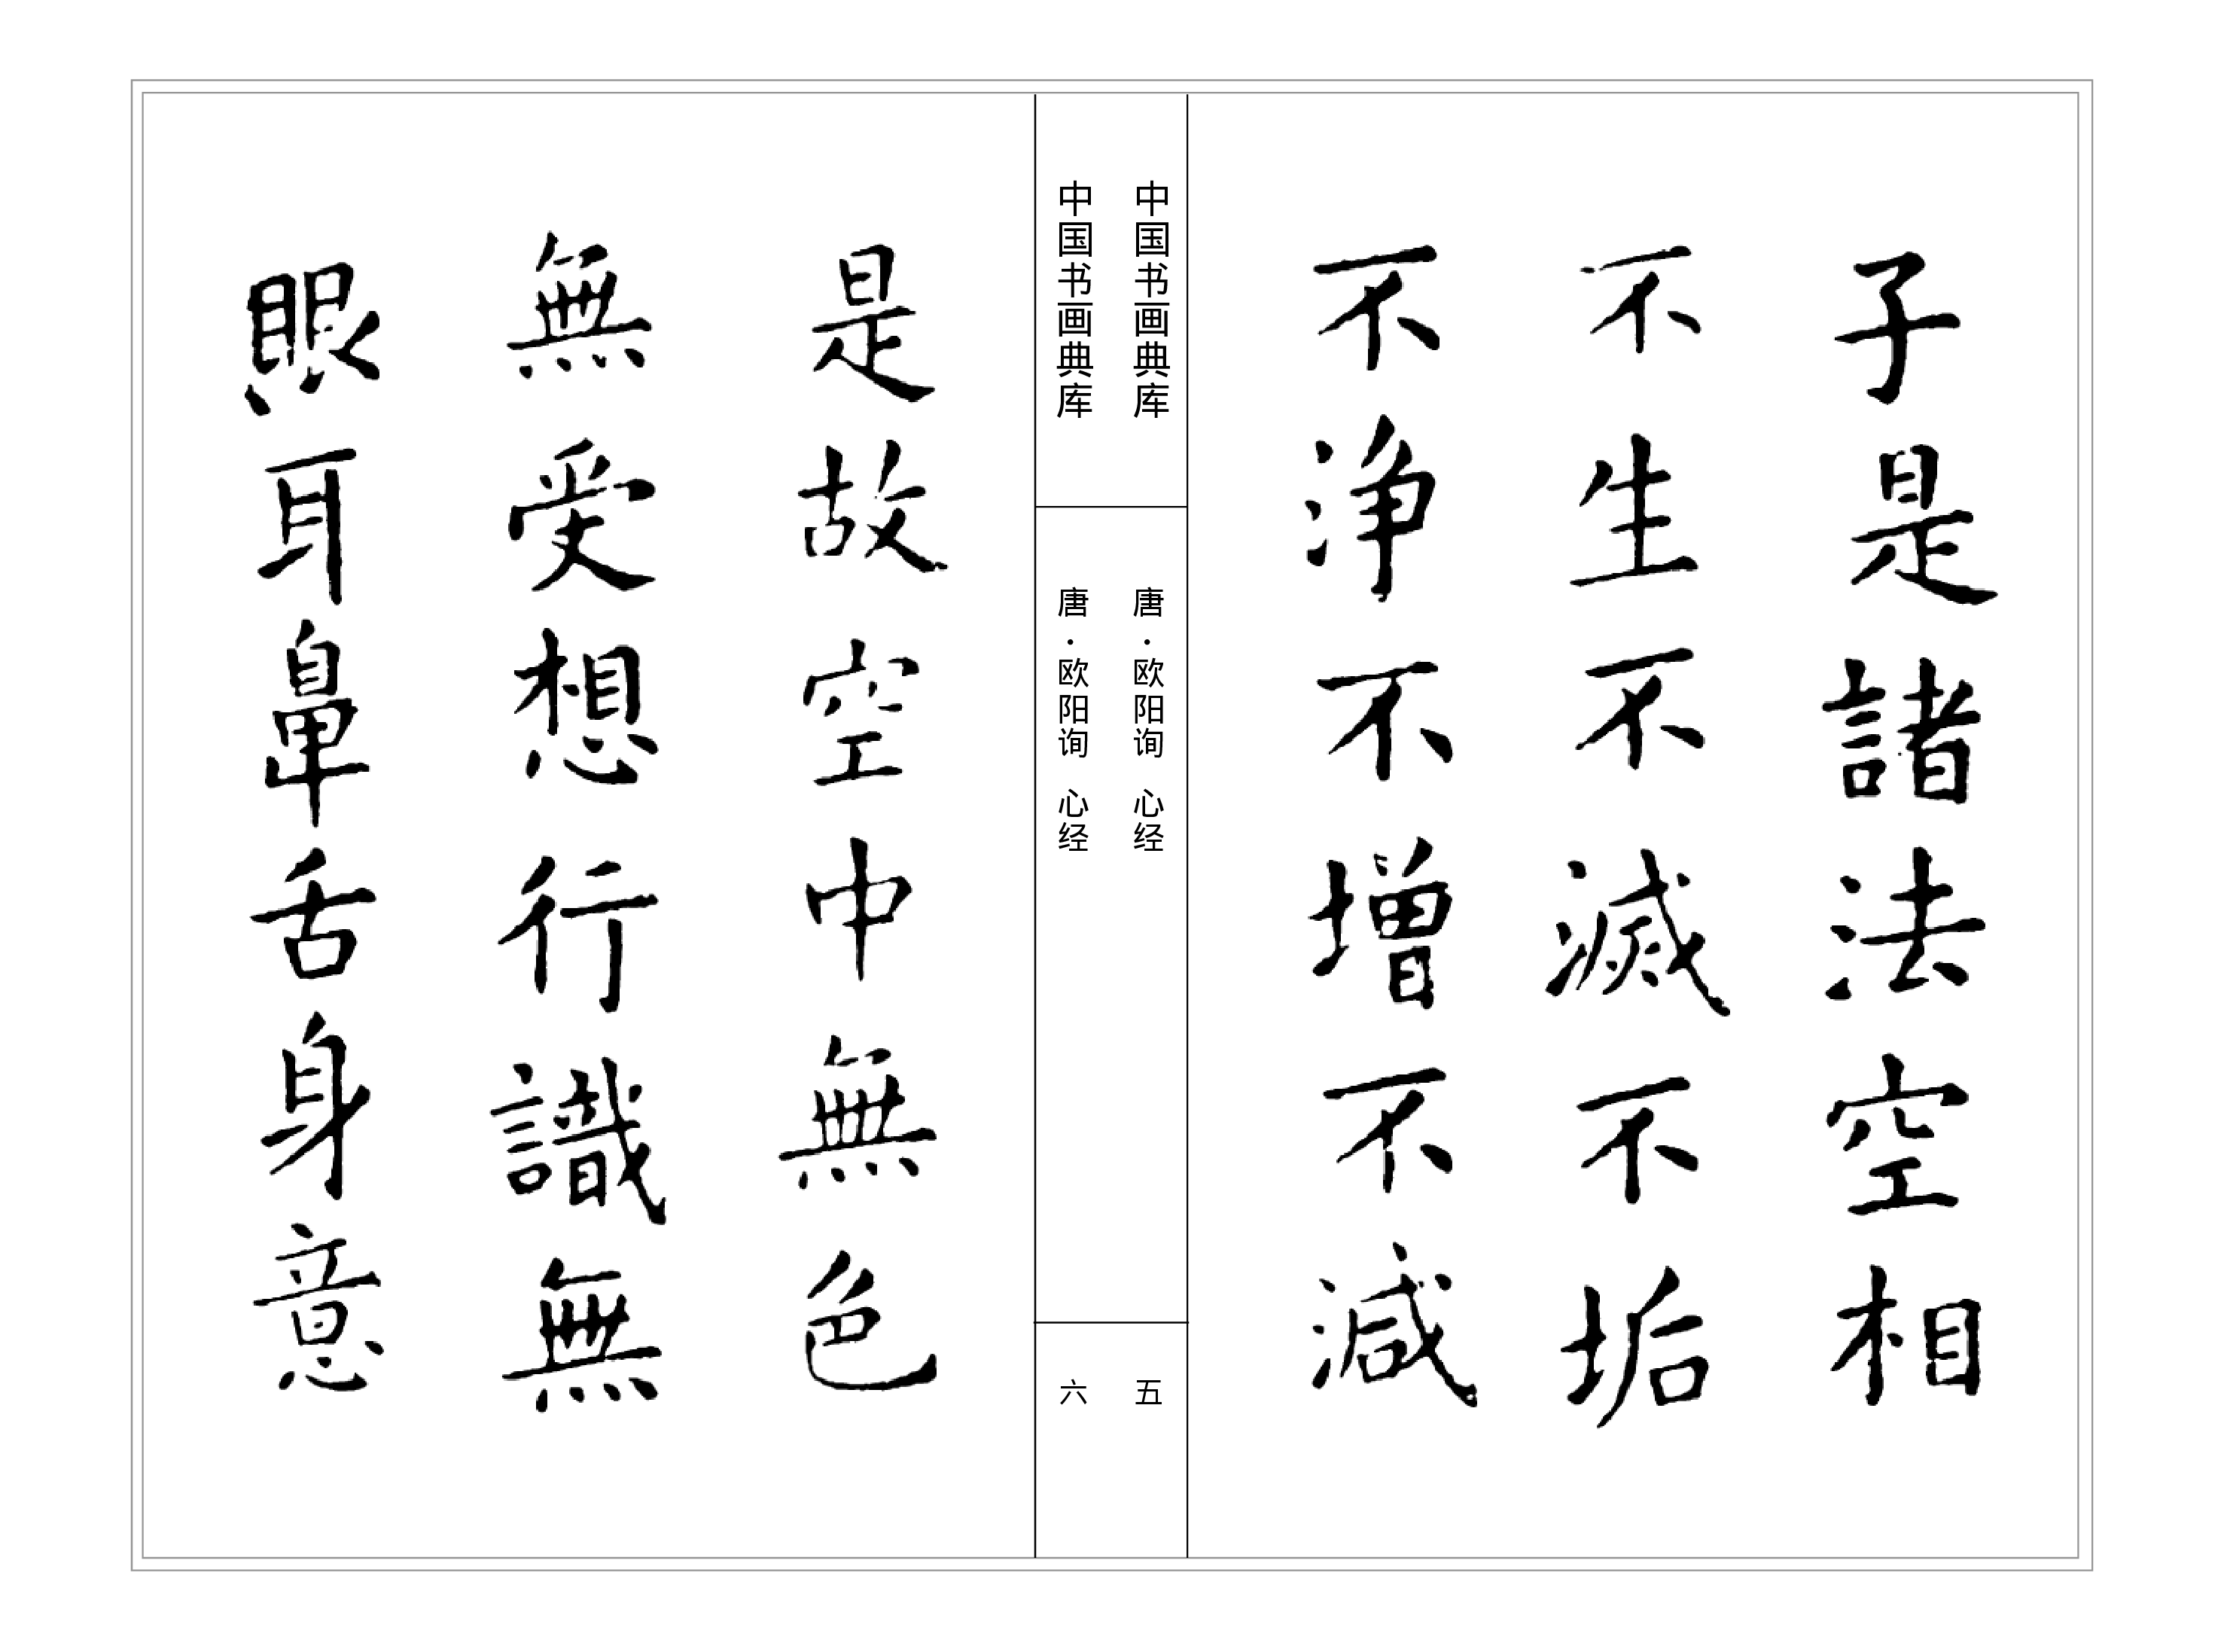 子是諸法空相
不生不滅不垢
不浄不增不減
中国书画典库
唐·欧阳询 心经
五
中国书画典库
唐·欧阳询 心经
六
是故空中無色
無受想行識無
眼耳鼻舌身意